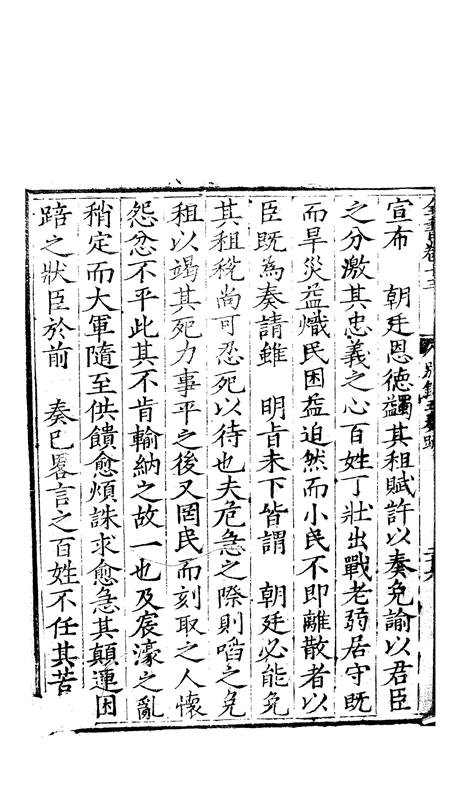 全書卷十三 別錄五奏疏
宣布 朝廷恩德蠲其租賦許以奏免諭以君臣
之分激其忠義之心百姓丁壯出戰老弱居守既
而旱災益熾民困益迫然而小民不即離散者以
臣既為奏請雖 明旨未下皆謂 朝廷必能免
其租稅尚可忍死以待也夫危急之際則啗之免
租以竭其死力事平之後又罔民而刻取之人懷
怨忿不平此其不肯輸納之故一也及宸濠之亂
稍定而大軍隨至供饋愈煩誅求愈急其顛連困
踣之狀臣於前 奏已畧言之百姓不任其苦